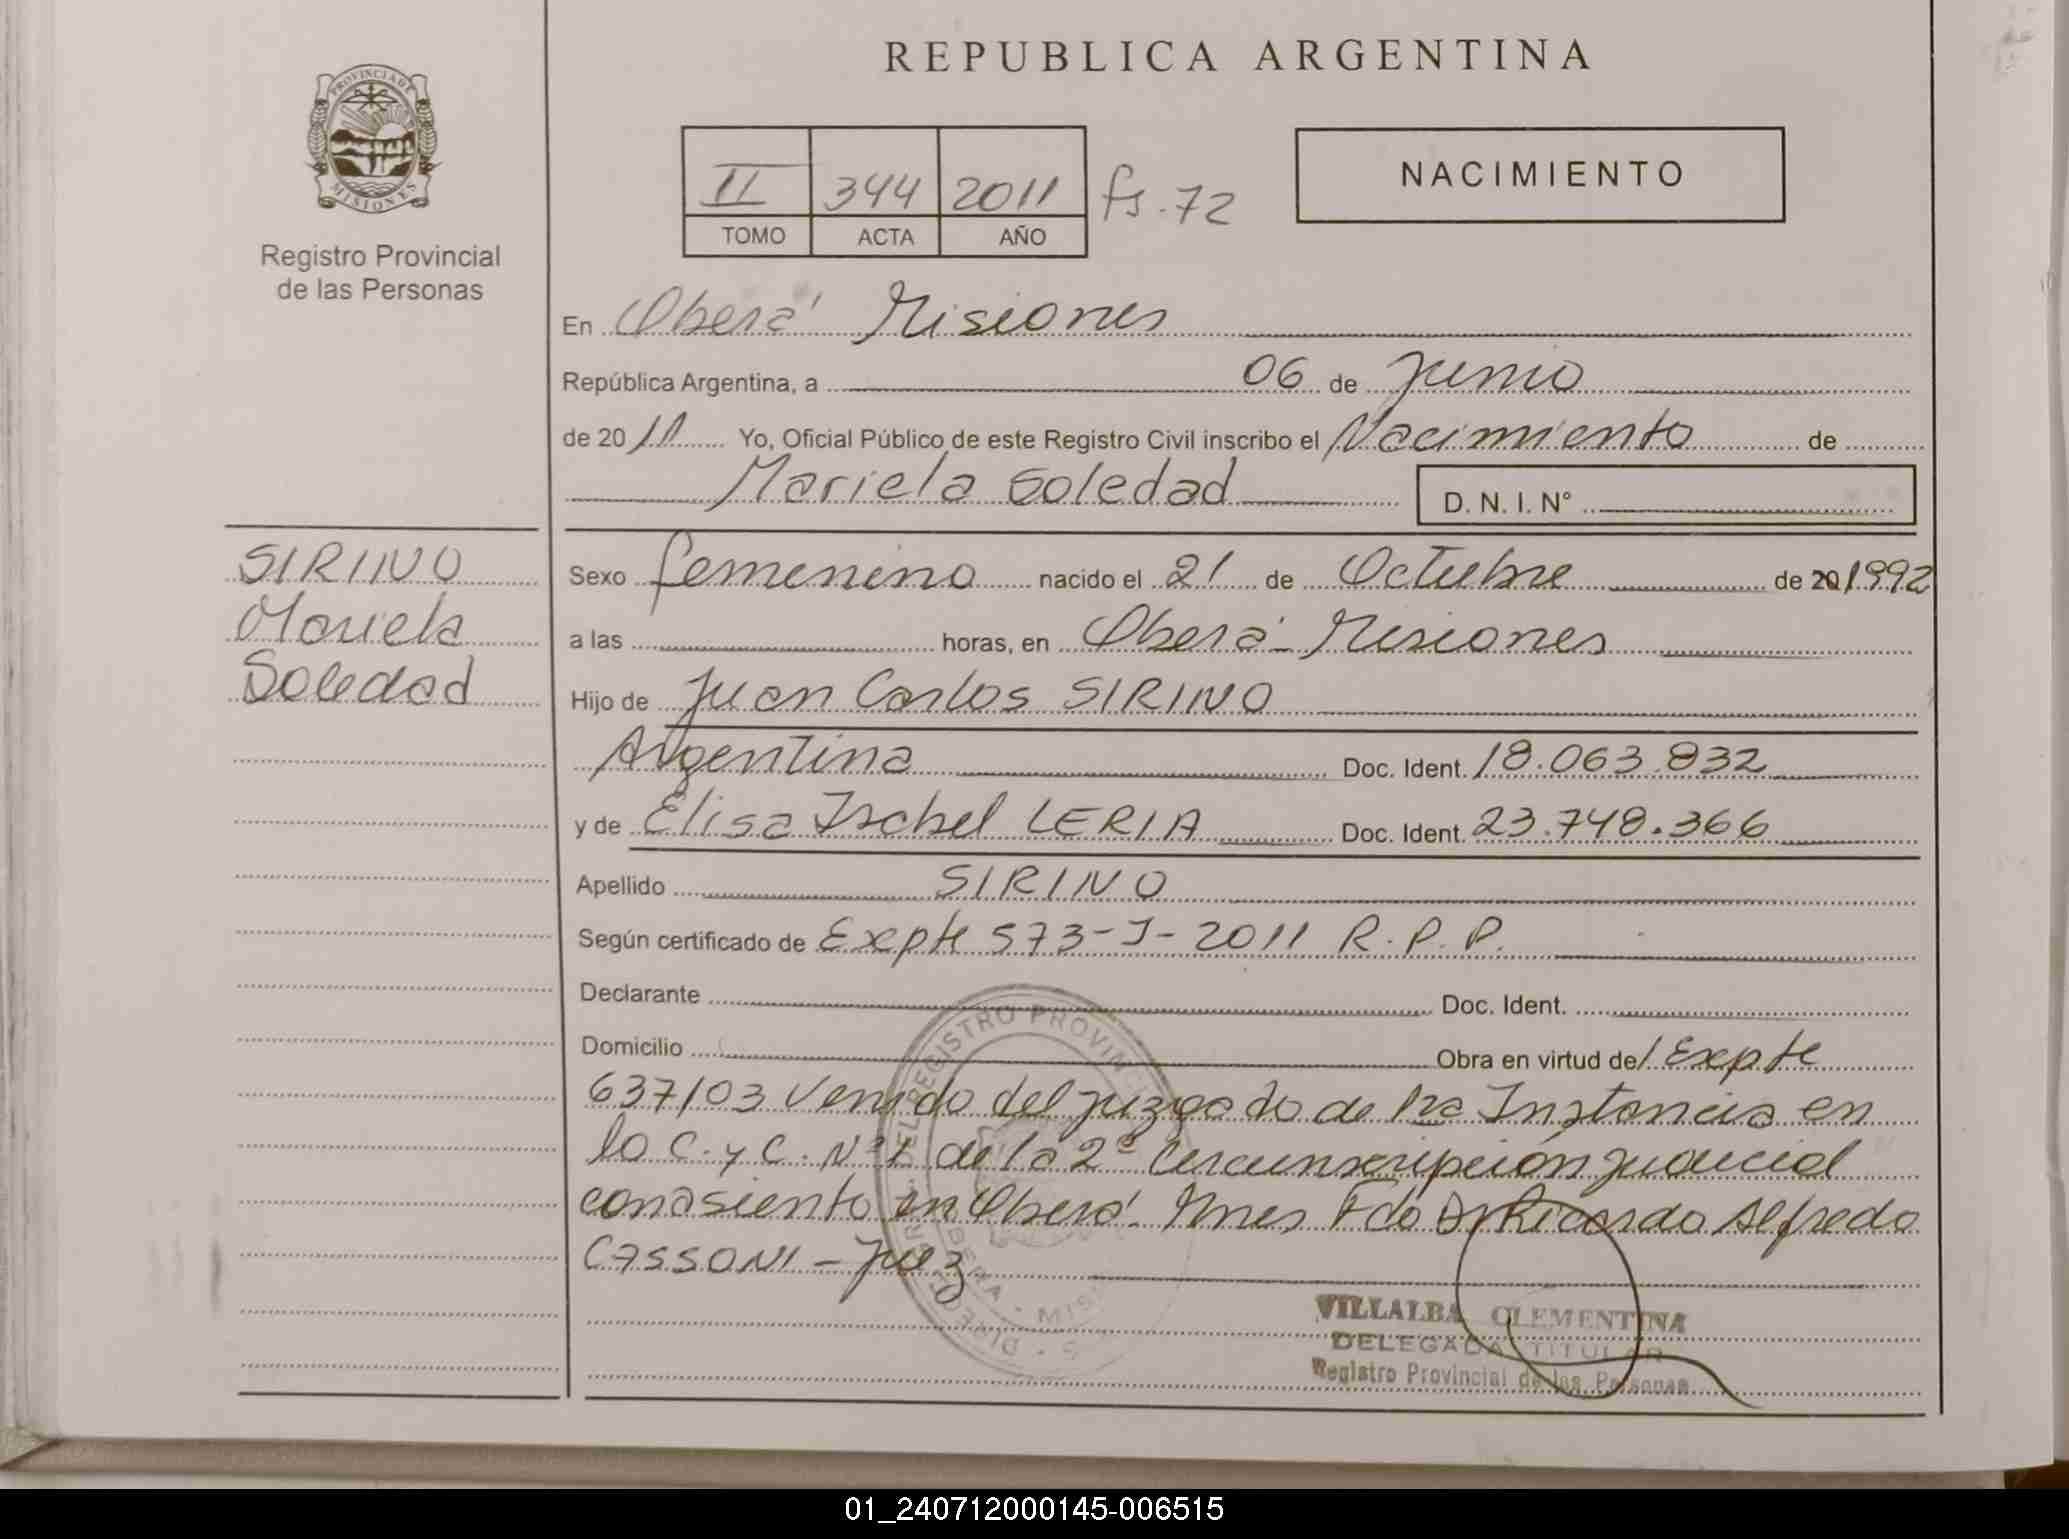 REPUBLICA ARGENTINA
PROVINCIA DE
MISIONES
Registro Provincial
de las Personas
II 344 2011 fs. 72
TOMO ACTA AÑO
NACIMIENTO
En Oberá Misiones
República Argentina, a 06 de Junio
de 2011 Yo, Oficial Público de este Registro Civil inscribo el Nacimiento de
Mariela Soledad D. N. I. N°
SIRINO
Mariela
Soledad
Sexo femenino nacido el 21 de Octubre de 20 1992
a las horas, en Oberá - Misiones
Hijo de Juan Carlos SIRINO
Argentina Doc. Ident. 18.063.832
y de Elisa Isabel LERIA Doc. Ident. 23.748.366
Apellido SIRINO
Según certificado de Expte 573-J-2011 R.P.P.
Declarante Doc. Ident.
Domicilio Obra en virtud de/ Expte
637/03 Venido del juzgado de 1ra Instancia en
lo C. y C. Nº1 de la 2º Circunscripción judicial
con asiento en Oberá - Mnes Fdo Dr Ricardo Alfredo
CASSONI - Juez
VILLALBA CLEMENTINA
DELEGADA TITULAR
Registro Provincial de las Personas
01_240712000145-006515